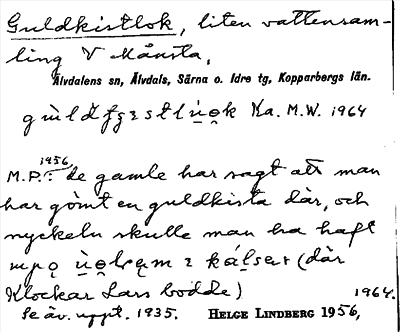 Guldkistlok, liten vattensam-
ling V Månsta,
Älvdalens sn, Älvdals, Särna o. Idre tg, Kopparbergs län.
Ka. M.W. 1964
1956
M.P.: de gamle har sagt att man
har gömt en guldkista där, och
nyckeln skulle man ha haft
(där
Klockar Lars bodde) 1964.
Se äv. uppt. 1935. HELGE LINDBERG 1956,